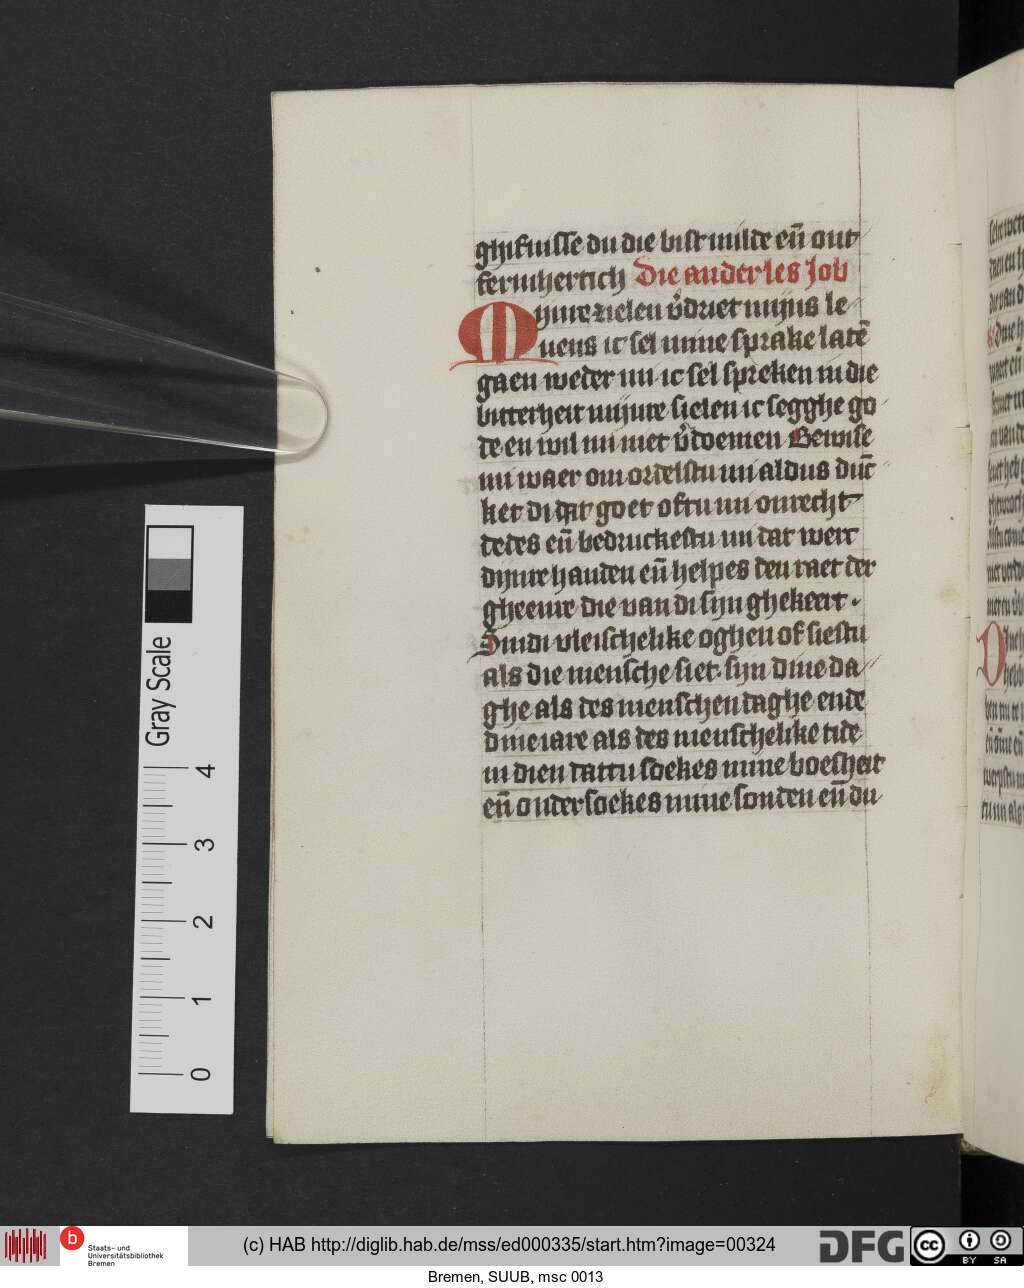 ghifnisse du die bist milde eñ ont
fermhertich Die ander les Job
Mijnre zielen v̄driet mijns le
uens ic sel mine sprake latē
gaen weder mi ic sel spreken in die
bitterheit mijnre sielen ic segghe go
de en wil mi niet v̄doemen Bewise
mi waer om ordelstu mi aldus dūc
ket di dat goet ofstu mi onrecht
dedes eñ bedruckestu mi dat werc
dijnre handen eñ helpes den raet der
gheenre die van di sijn ghekeert .
Sindi vleischelike oghen of siestu
als die mensche siet sijn dine da
ghe als des menschen daghe ende
dine iare als des menschelike tide
in dien dattu soekes mine boesheit
eñ ondersoekes mine sonden eñ du
Gray Scale
4
3
2
1
0
b
Staats- und
Universitätsbibliothek
Bremen
(c) HAB http://diglib.hab.de/mss/ed000335/start.htm?image=00324
DFG
cc
BY SA
Bremen, SUUB, msc 0013